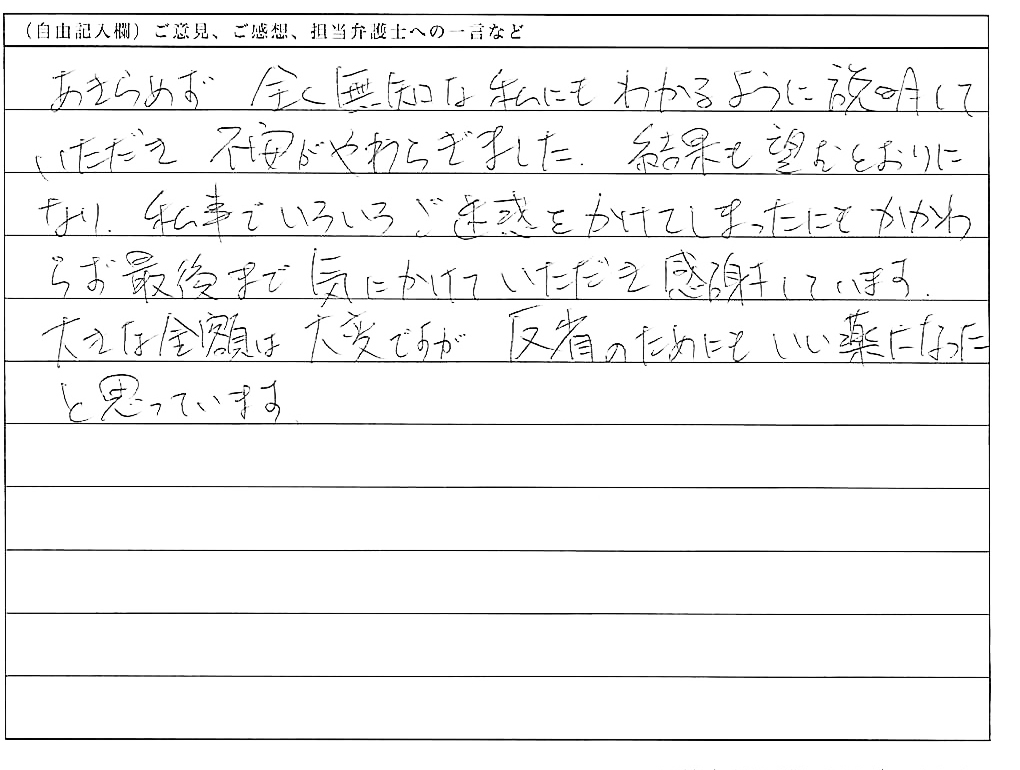 （自由記入欄）ご意見、ご感想、担当弁護士への一言など
あきらめず 全く無知な私にもわかるように説明して
いただき 不安がやわらぎました. 結果も望むとおりに
なり. 私事でいろいろご迷惑をかけてしまったにもかかわ
らず最後まで気にかけていただき感謝しています.
大きな金額は大変ですが 反省のためにもいい薬になった
と思っています